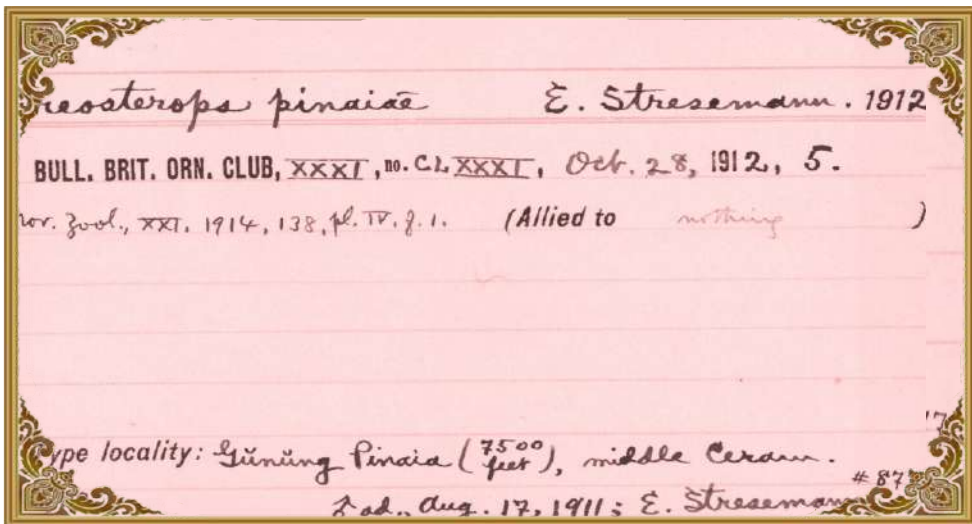 reosterops pinaiae E. Stresemann. 1912
BULL. BRIT. ORN. CLUB, XXXI, no. CLXXXI, Oct. 28, 1912, 5.
nov. Zool., XXI. 1914, 138, pl. IV. f. 1. (Allied to nothing )
ype locality: Gŭnŭng Pinaia (7500 feet), middle Ceram.
# 87
ad., Aug. 17, 1911; E. Stresemann